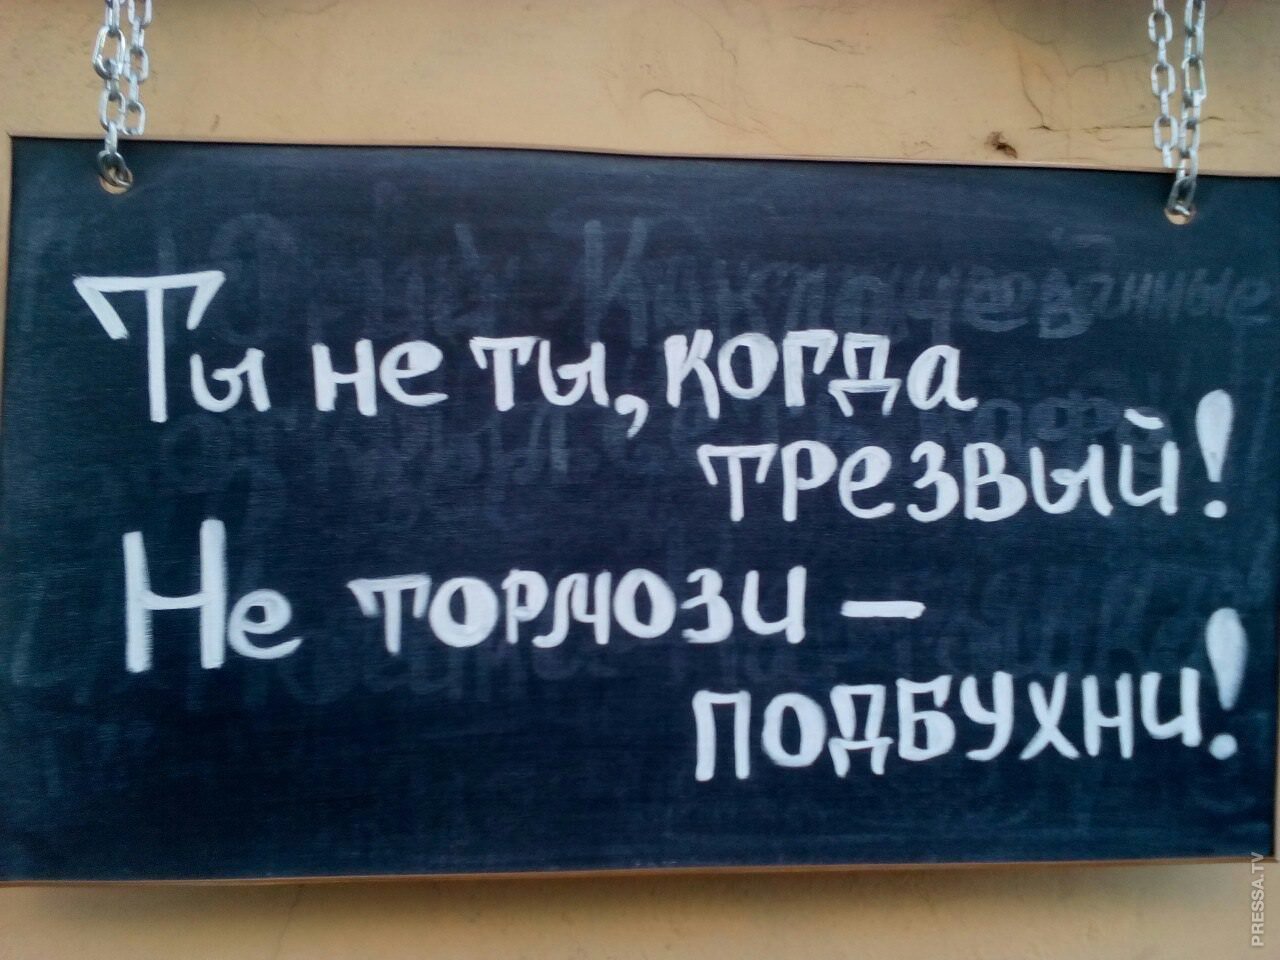 Ты не ты, когда
трезвый!
Не тормози –
подбухни!
PRESSA.TV